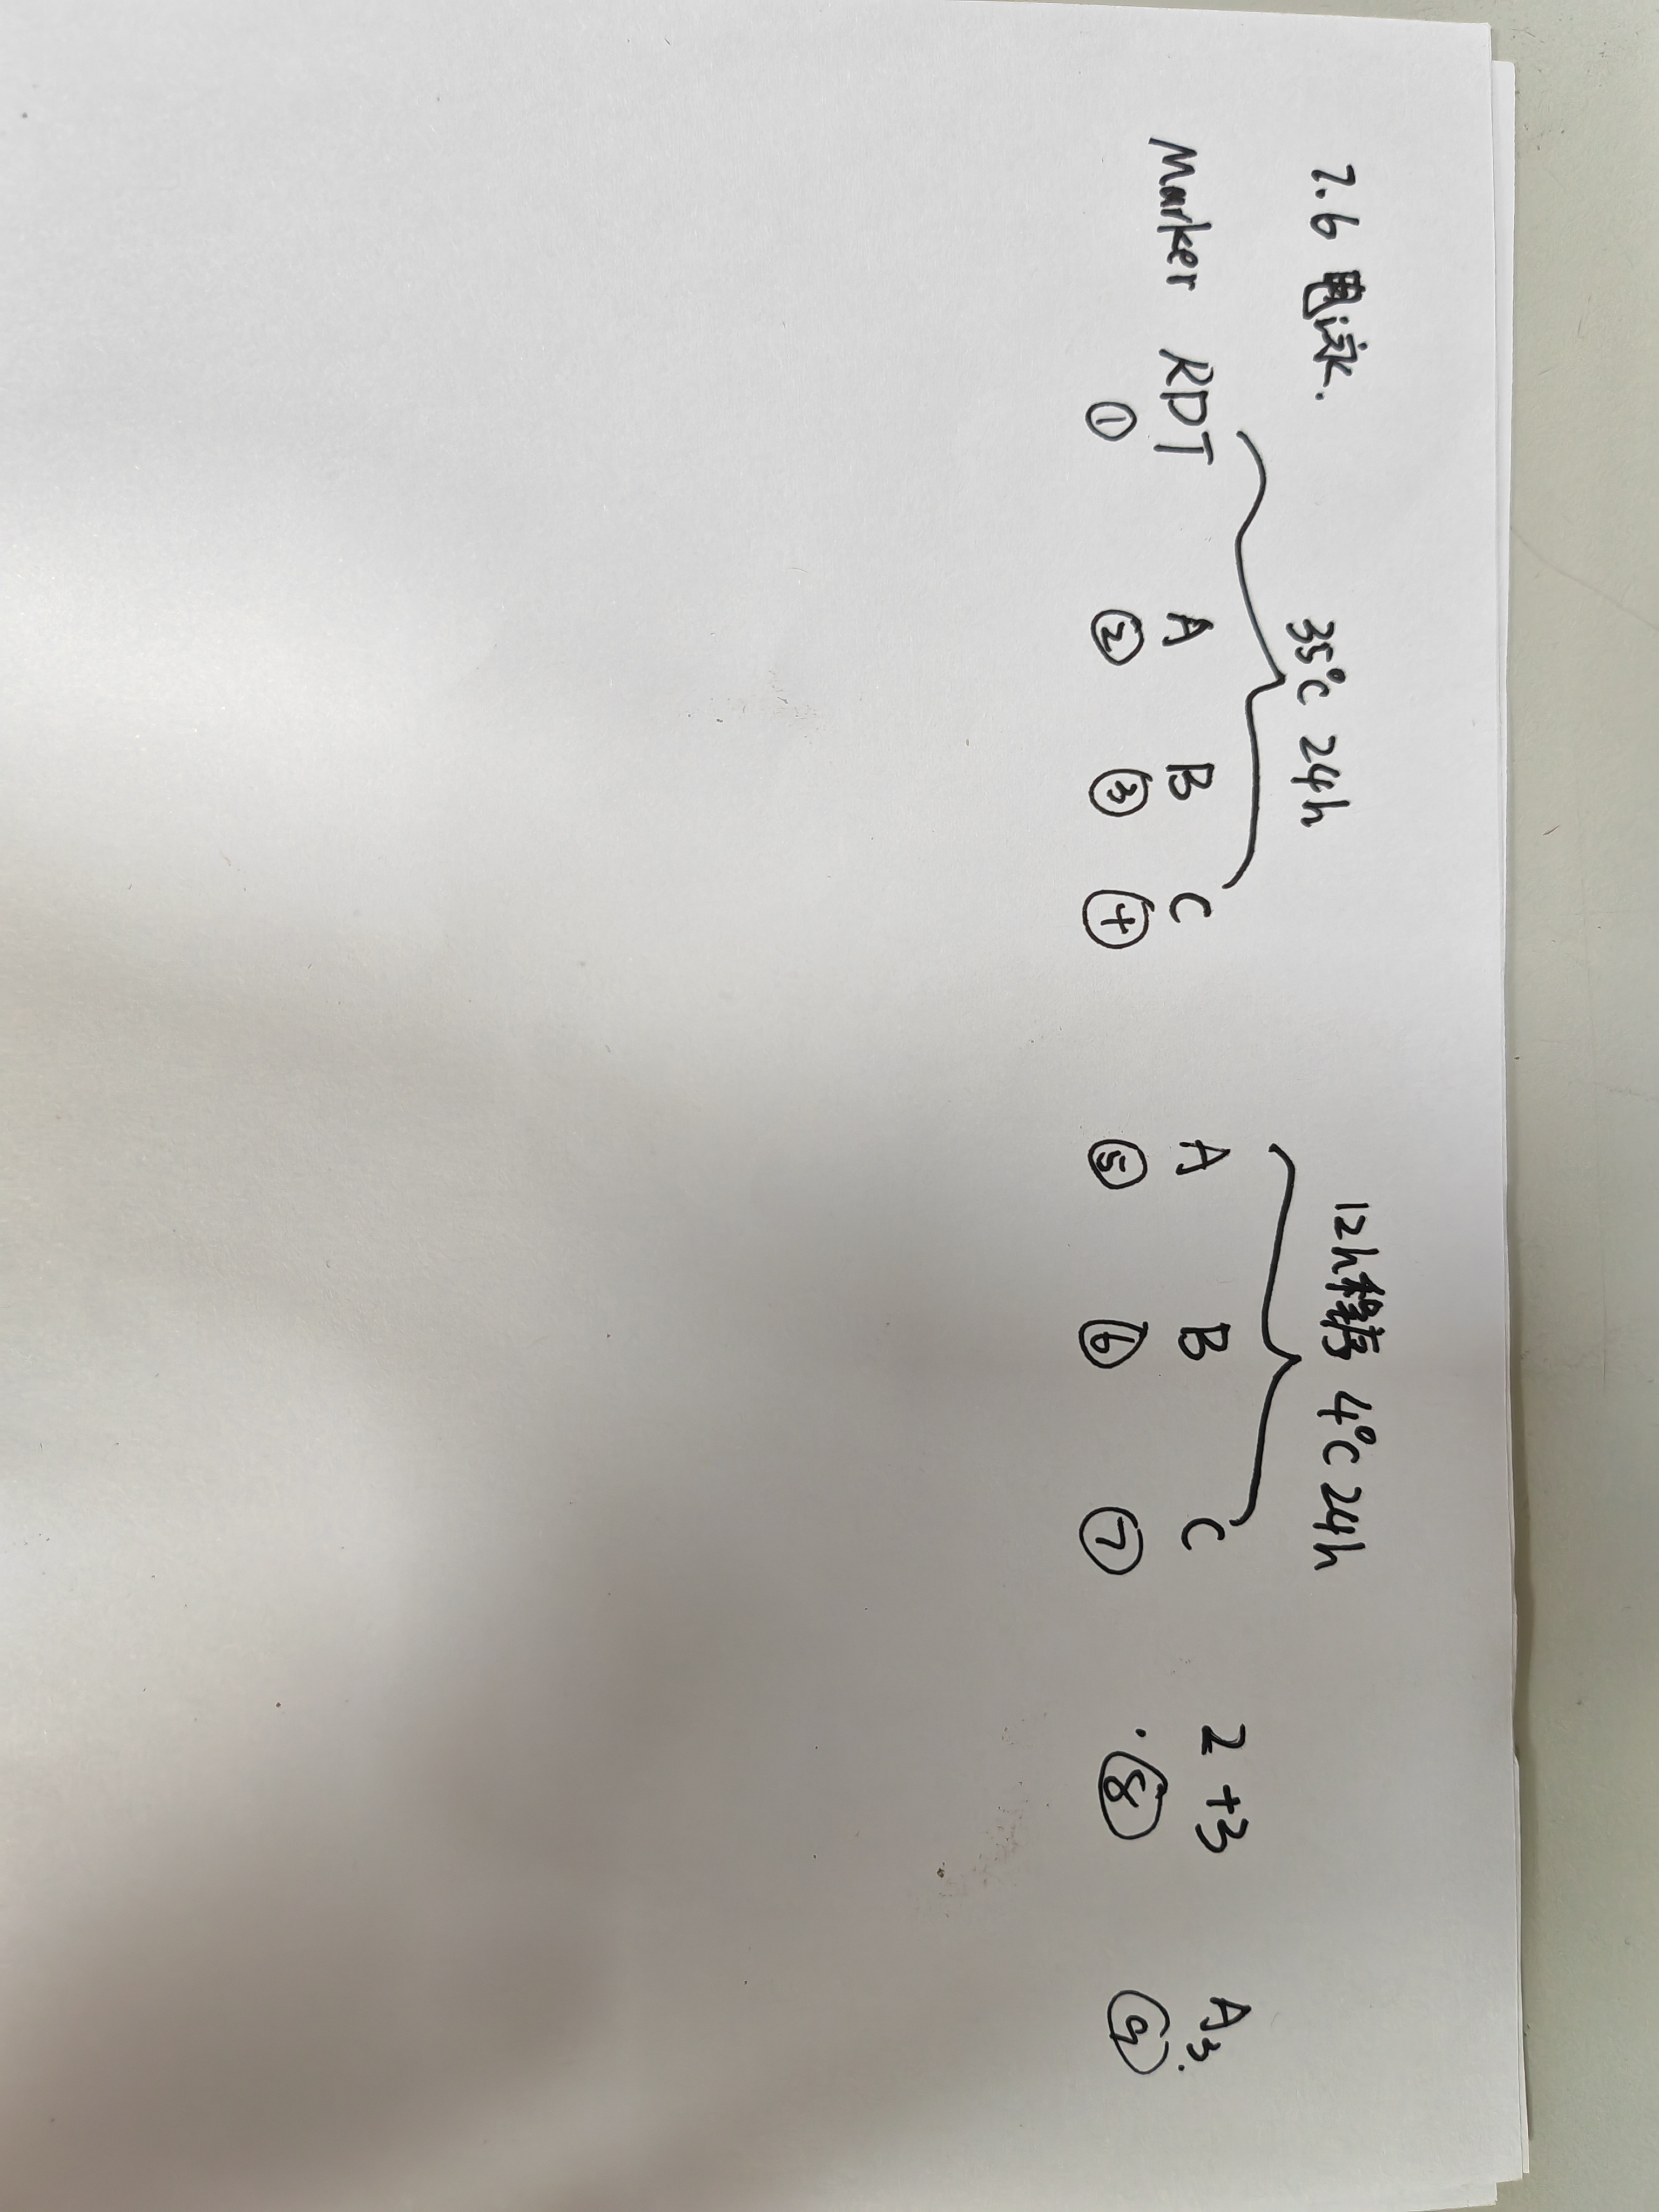 7.6 电泳.
35°C 24h
12h程序 4°C 24h
Marker RDT A B C A B C 2 +3 A₃.
① ② ③ ④ ⑤ ⑥ ⑦ ⑧ ⑨